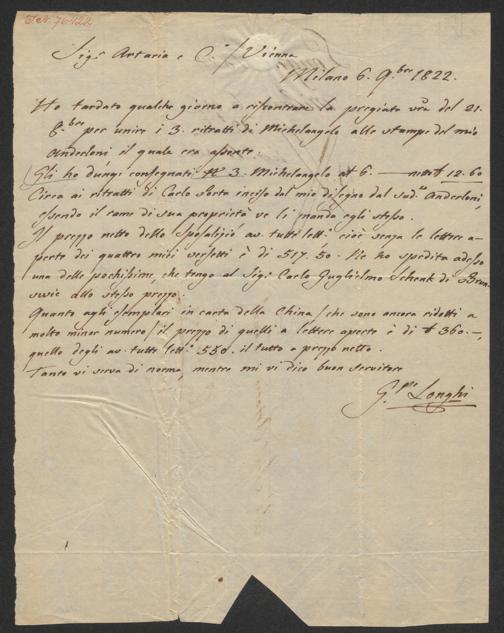 Sigri Artaria e C.i / Vienna
Milano 6. 9.bre 1822.
Ho tardato qualche giorno a riscontrare la pregiata vra del 21.
8.bre per unire i 3. ritratti di Michelangelo alle stampe del mio
Anderloni, il quale era assente.
Gli ho dunqe consegnati No 3. Michelangelo a 6. — 12.60
Circa ai ritratti di Carlo Porta incisi dal mio disegno dal sud.o Anderloni,
essendo il rame di sua proprietà ve li manda egli stesso.
Il prezzo netto dello Sposalizio av. tutte lett. cioè senza le lettere a-
perte dei quattro midi versetti è di 517.50. Ne ho spedita adesso
una delle pochissime, che tengo al Sigr Carlo Guglielmo Schenk di Brun-
svic allo stesso prezzo.
Quanto agli esemplari in carta della China / che sono ancora ridotti a
molto minor numero / il prezzo di quelli a lettere aperte è di 360.—,
quello degli av. tutte lett. 580. il tutto a prezzo netto.
Tanto vi serva di norma, mentre mi vi dico buon servitore
G.ppe Longhi